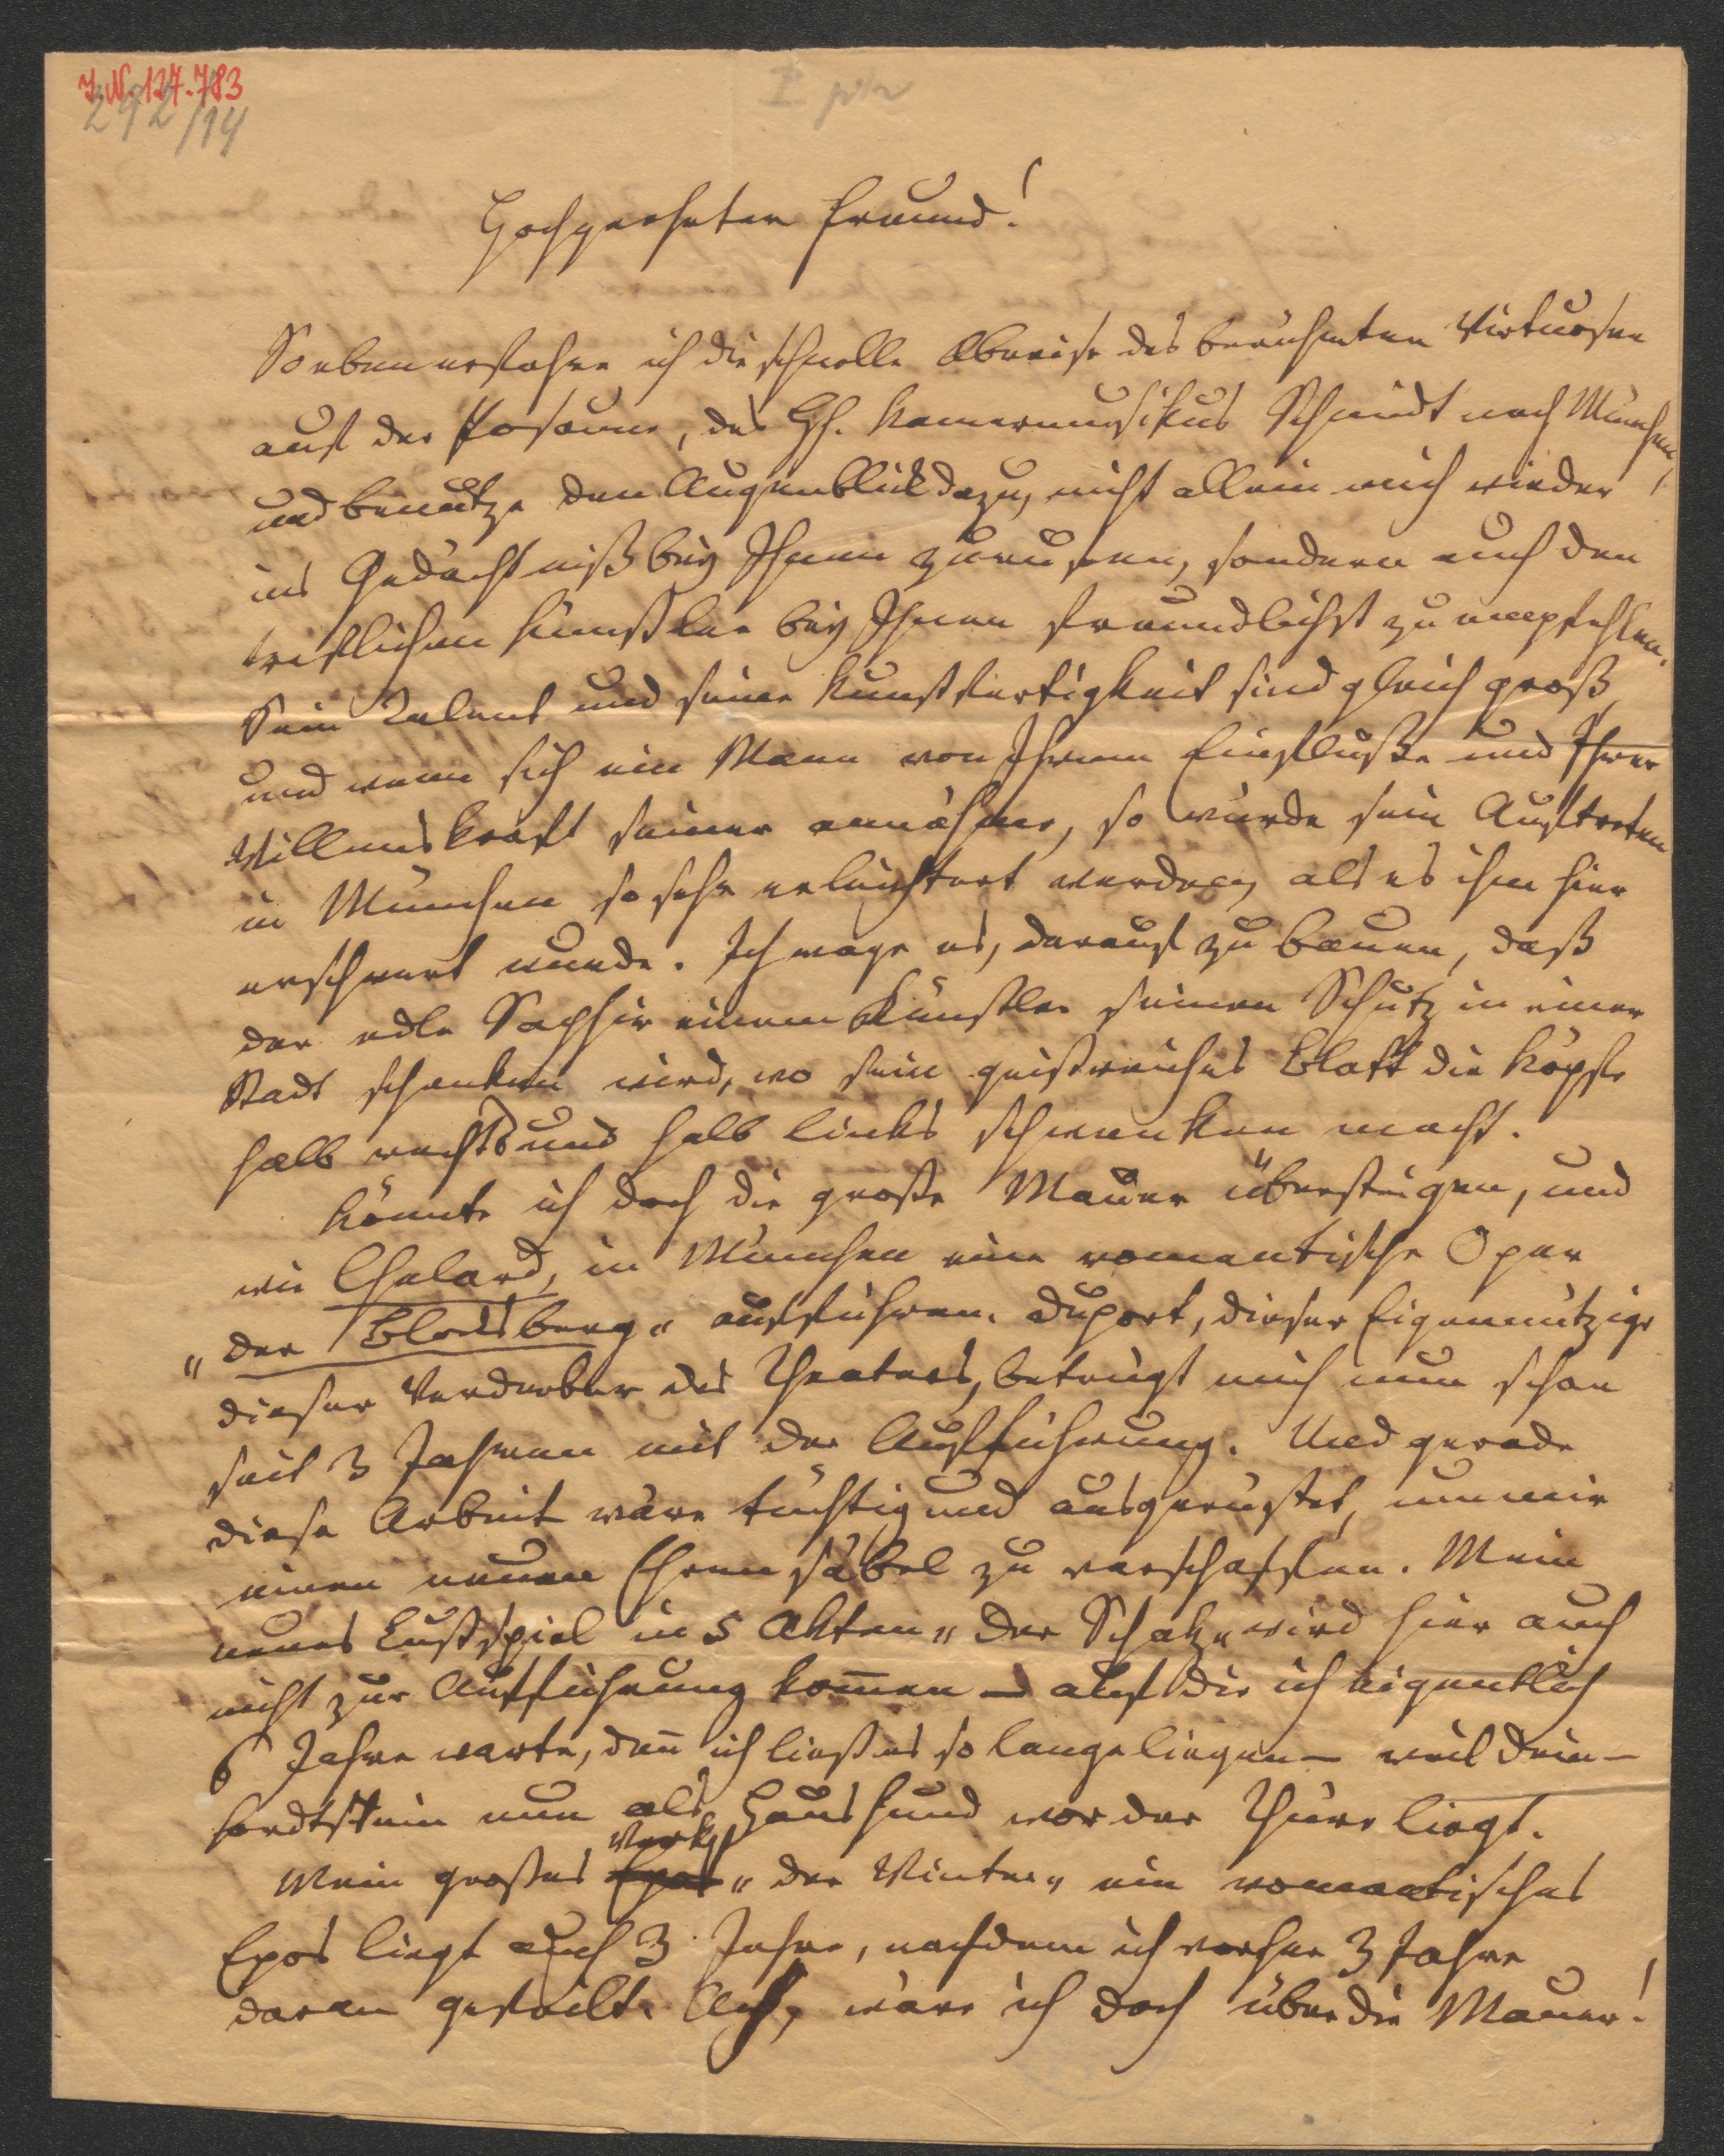 I.N. 127.783
292/14
Hochgeehrter Freund!
So eben erfahre ich die schnelle Abreise des berühmten Virtuosen
auf der Posaune, des H. Kamermusikus Schmidt nach München,
und benutze den Augenblick dazu, nicht allein mich wieder
ins Gedächtniß bey Ihnen zurufen, sondern auch den
trefflichen Künstler bey Ihnen freundlichst zu empfehlen.
Sein Talent und seine Kunstfertigkeit sind gleich groß,
und wenn sich ein Mann von Ihrem Einfluße und Ihrer
Willenskraft seiner annähme, so würde sein Auftreten
in München so sehr erleichtert werden, als es ihm hier
erschwert wurde. Ich wage es, darauf zu bauen, daß
der edle Saphir einem Künstler seinen Schutz in einer
Stadt schenken wird, wo sein geistreiches Blatt die Köpfe
halb rechts und halb links schwenken macht.
Könnte ich doch die große Mauer übersteigen, und
wie Chelard, in München eine romantische Oper
„der Blocksberg“ aufführen. Duport, dieser Eigennützige
dieser Verderber des Theaters, betrügt mich nun schon
seit 3 Jahren mit der Aufführung. Und gerade
diese Arbeit wäre tüchtig und ausgerüstet, um mir
einen neuen Ehrensäbel zu verschaffen. Mein
neues Lustspiel in 5 Akten „Der Schatz“ wird hier auch
nicht zur Aufführung kom̄en — auf die ich eigentlich
6 Jahre warte, den̄ ich ließ es so lange liegen — weil Dein-
hardtstein nun als Haushund vor der Thüre liegt.
Mein großes Epos Werk „der Winter“ ein romantisches
Epos liegt auch 3 Jahre, nachdem ich vorher 3 Jahre
daran gefeilt. Ach, wäre ich doch über die Mauer!